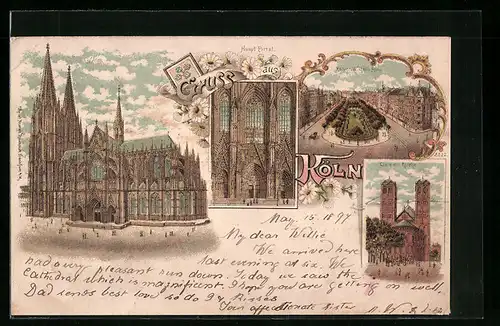 Haupt Portal.
Gruss
aus
Köln
May. 15. 1897
My dear Willie
We arrived here
last evening at six. We
had a very pleasant run down. Today we saw the
Cathedral which is magnificent. I hope you are getting on well.
Dad sends best love so do I
Your affectionate sister